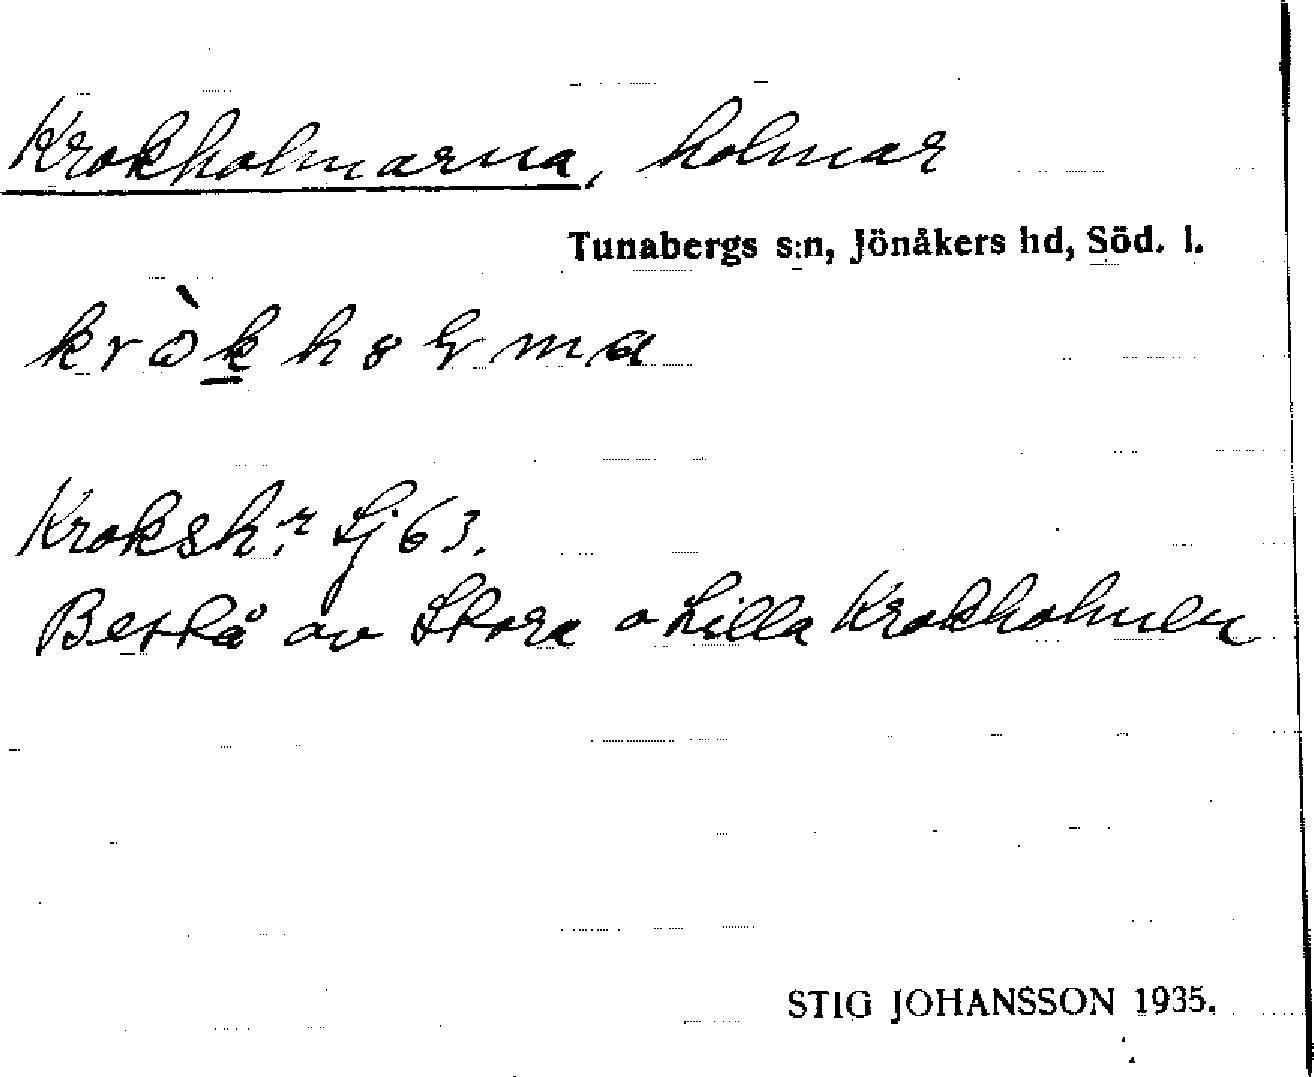 Krokholmarna, holmar
Tunabergs s:n, Jönåkers hd, Söd. l.
Kroksh:r Lj 63.
Bestå av Stora o Lilla Krokholmen
STIG JOHANSSON 1935.